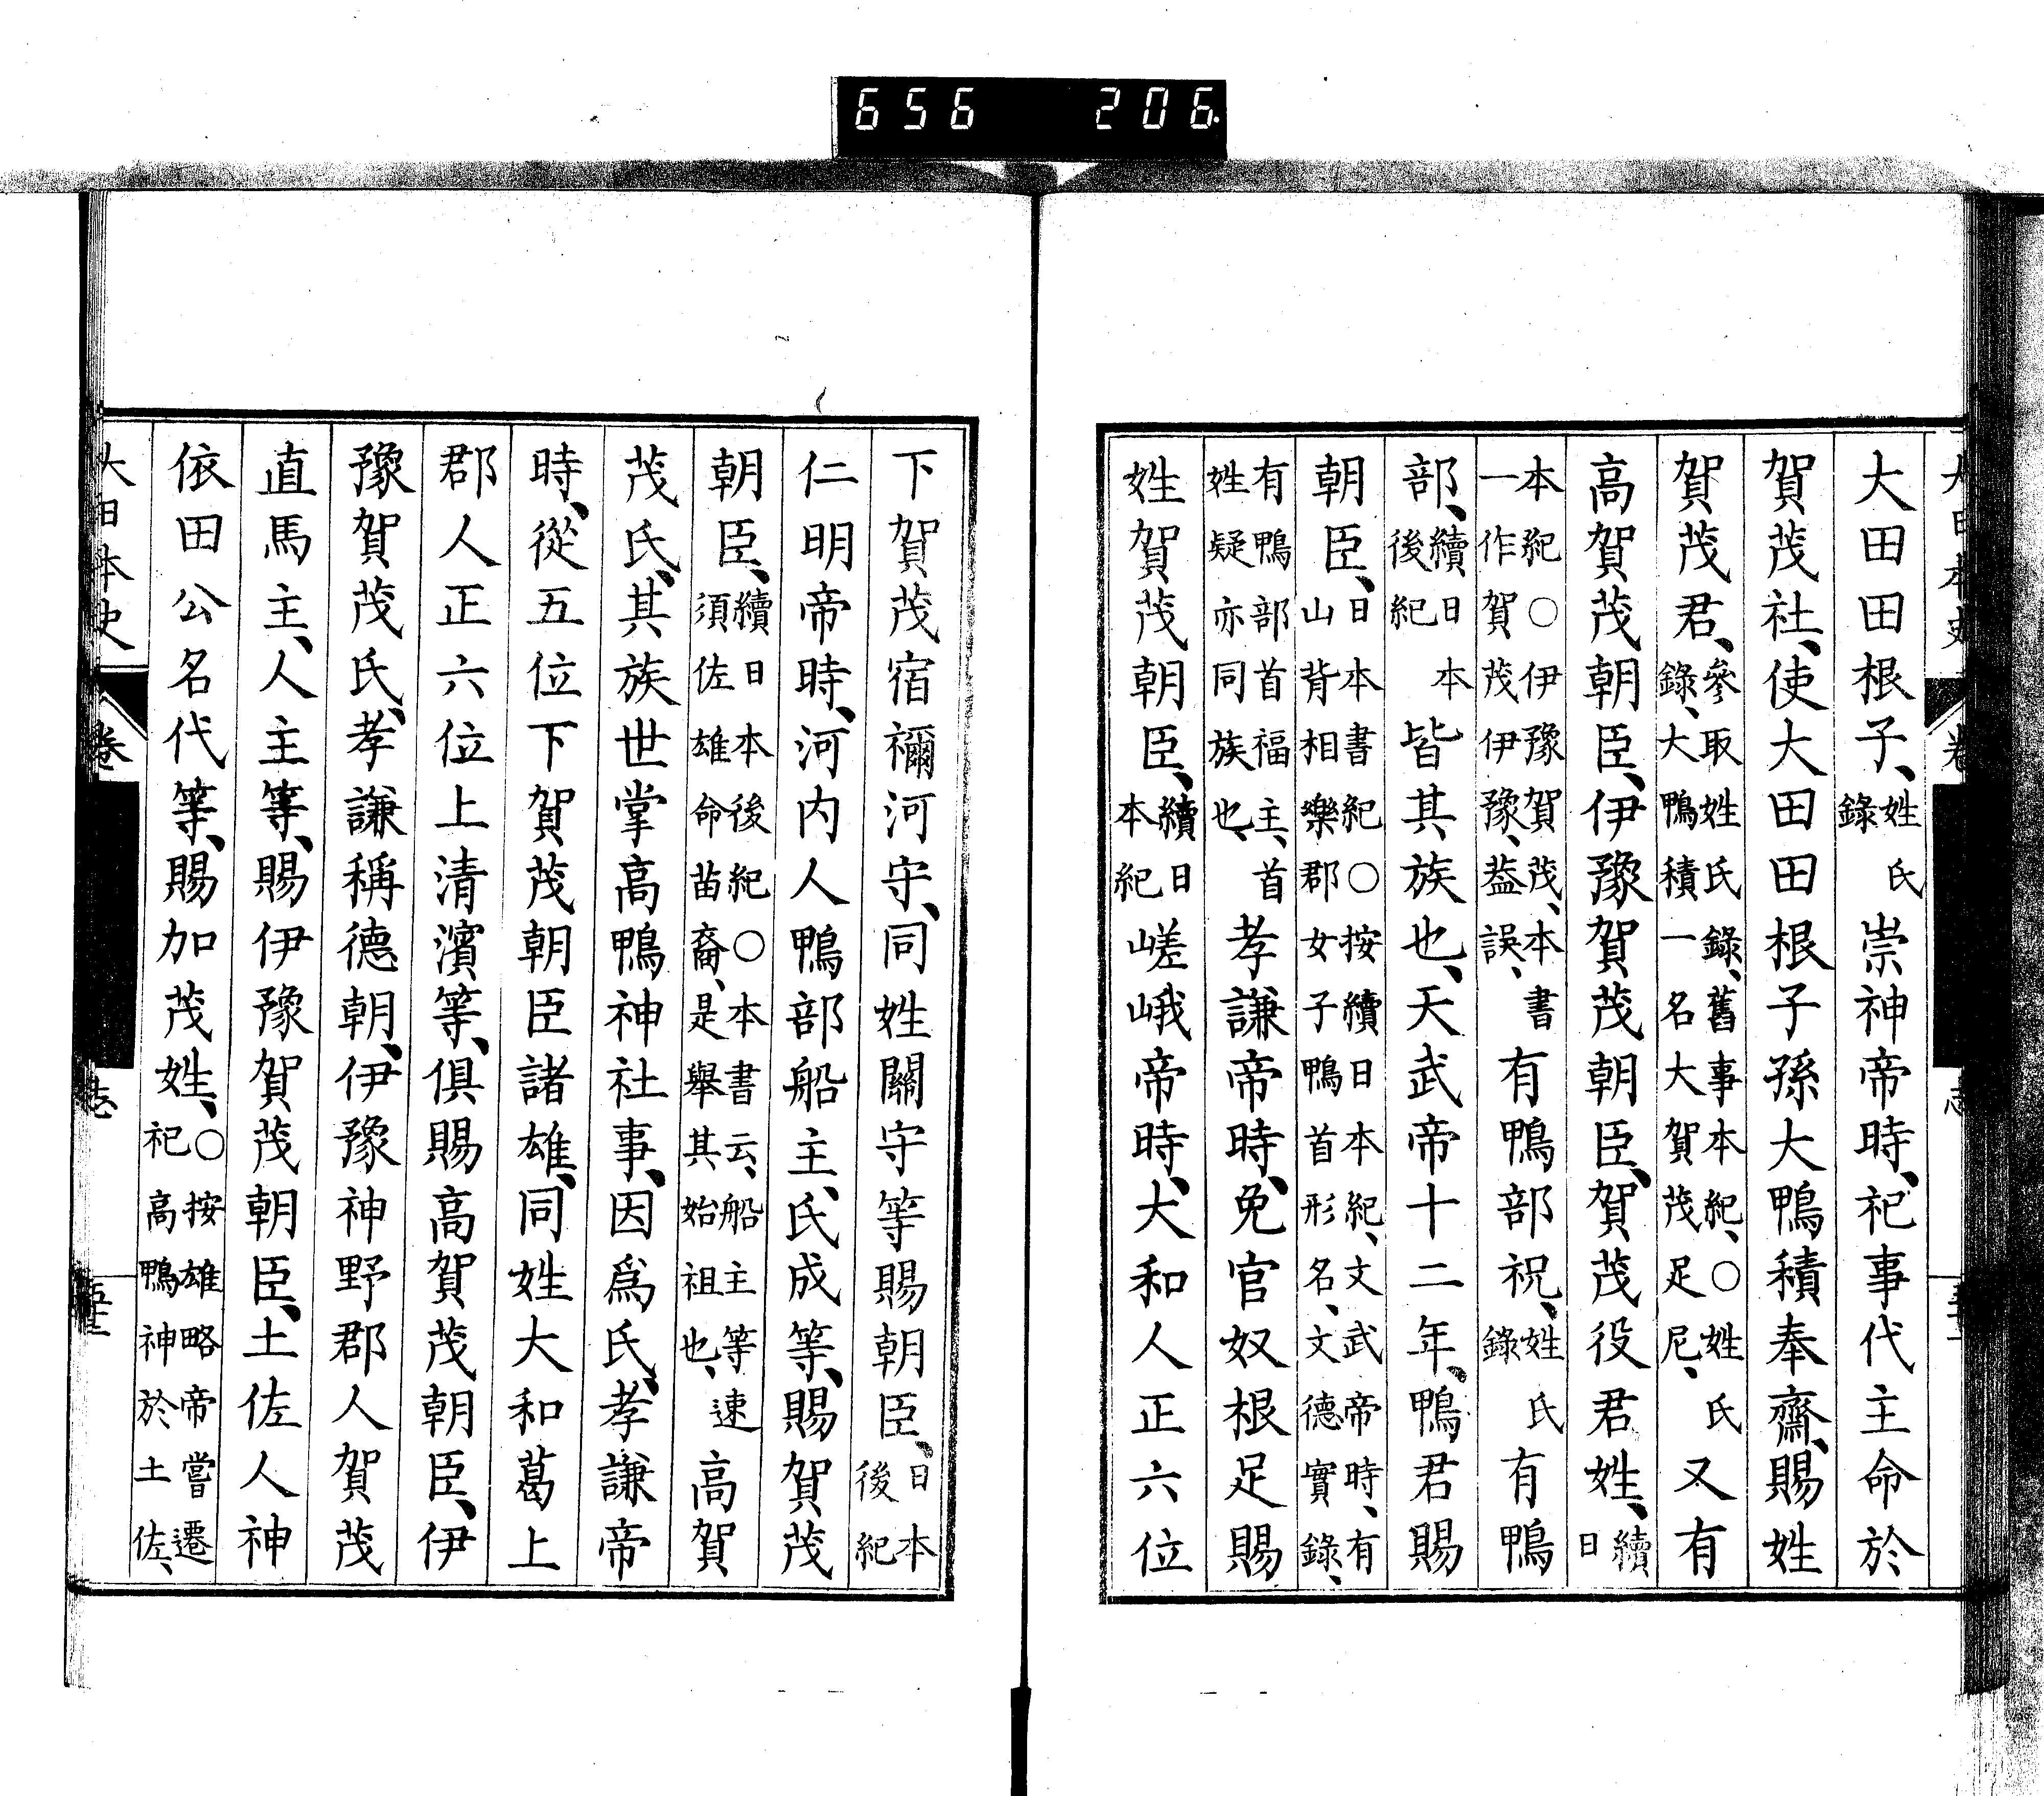 656 206
大田田根子、姓氏錄崇神帝時、祀事代主命於
賀茂社、使大田田根子孫大鴨積奉齋、賜姓
賀茂君、參取姓氏錄、舊事本紀、○姓氏錄、大鴨積一名大賀茂足尼、又有
高賀茂朝臣、伊豫賀茂朝臣、賀茂役君姓、續日
本紀○伊豫賀茂、本書一作賀茂伊豫、蓋誤、有鴨部祝、姓氏錄有鴨
部、續日本後紀皆其族也、天武帝十二年、鴨君賜
朝臣、日本書紀○按續日本紀、文武帝時、有山背相樂郡女子鴨首形名、文德實錄、
有鴨部首福主、首姓疑亦同族也、孝謙帝時、免官奴根足賜
姓賀茂朝臣、續日本紀嵯峨帝時、大和人正六位
下賀茂宿禰河守、同姓關守等賜朝臣、日本後紀
仁明帝時、河内人鴨部船主、氏成等、賜賀茂
朝臣、續日本後紀○本書云、船主等速須佐雄命苗裔、是舉其始祖也、高賀
茂氏、其族世掌高鴨神社事、因爲氏、孝謙帝
時、從五位下賀茂朝臣諸雄、同姓大和葛上
郡人正六位上清濱等、俱賜高賀茂朝臣、伊
豫賀茂氏、孝謙稱德朝、伊豫神野郡人賀茂
直馬主、人主等、賜伊豫賀茂朝臣、土佐人神
依田公名代等、賜加茂姓、○按雄略帝嘗遷祀高鴨神於土佐、
大日本史 卷 志